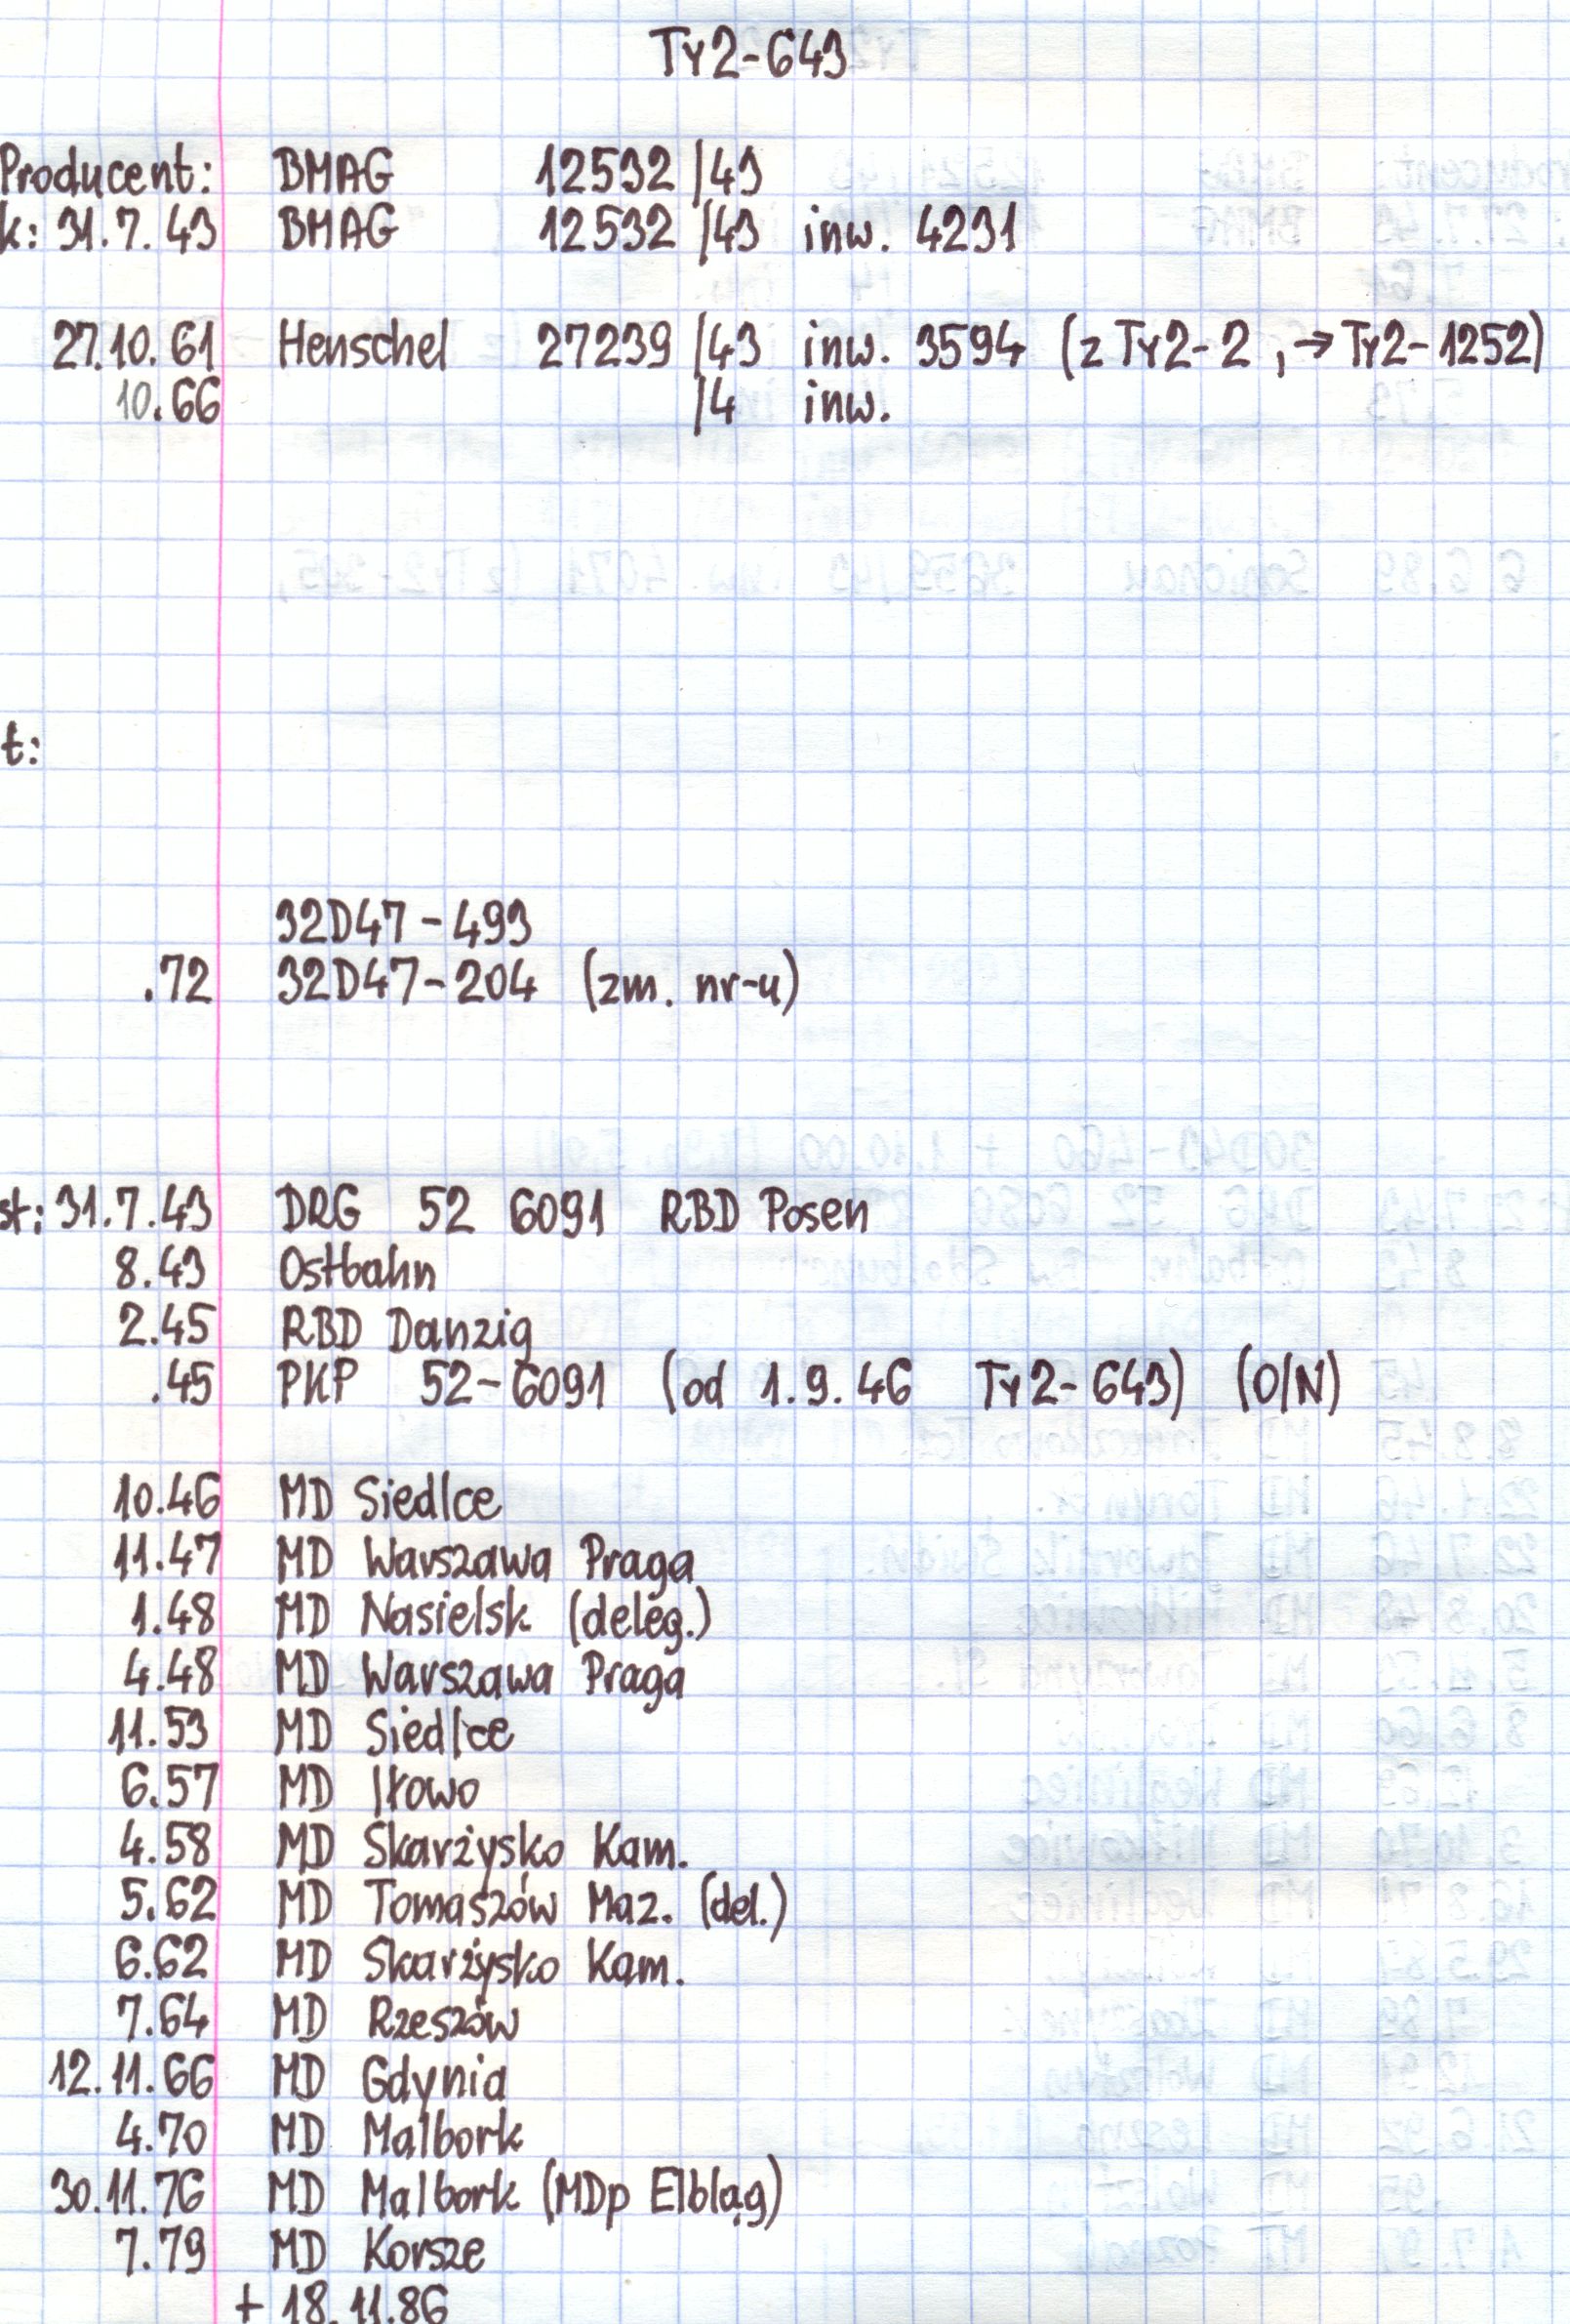 Ty2-643
Producent: BMAG 12532/43
k: 31.7.43 BMAG 12532/43 inw. 4231
27.10.61 Henschel 27239/43 inw. 3594 (z Ty2-2, → Ty2-1252)
10.66 /4 inw.
t:
32D47-493
.72 32D47-204 (zm. nr-u)
st: 31.7.43 DRG 52 6091 RBD Posen
8.43 Ostbahn
2.45 RBD Danzig
.45 PKP 52-6091 (od 1.9.46 Ty2-643) (O/N)
10.46 MD Siedlce
11.47 MD Warszawa Praga
1.48 MD Nasielsk (deleg.)
4.48 MD Warszawa Praga
11.53 MD Siedlce
6.57 MD Iłowo
4.58 MD Skarżysko Kam.
5.62 MD Tomaszów Maz. (del.)
6.62 MD Skarżysko Kam.
7.64 MD Rzeszów
12.11.66 MD Gdynia
4.70 MD Malbork
30.11.76 MD Malbork (MDp Elbląg)
7.79 MD Korsze
+ 18.11.86